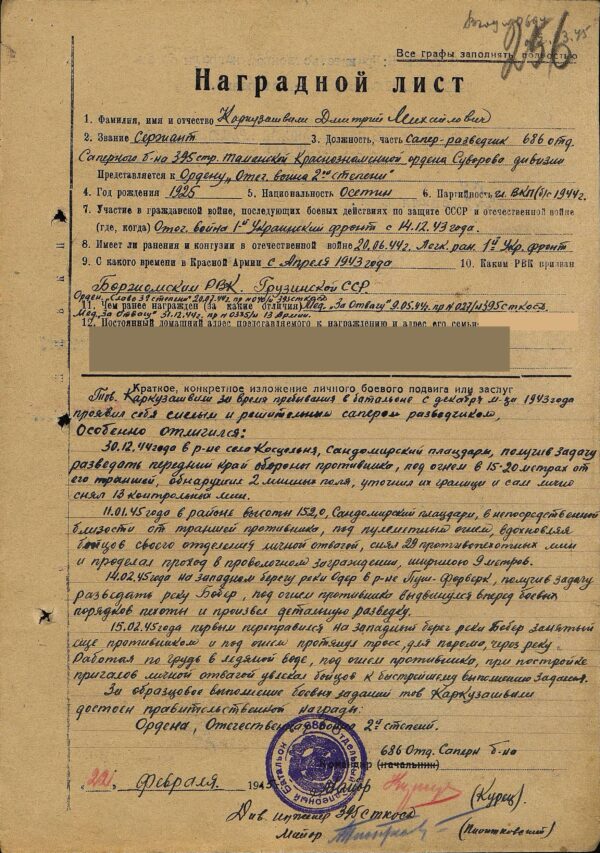 256
3.45
Все графы заполнять полностью
Наградной лист
1. Фамилия, имя и отчество Каркузашвили Дмитрий Михайлович
2. Звание Сержант 3. Должность, часть сапер-разведчик 686 отд.
Саперного б-на 395 стр. таманской Краснознаменной ордена Суворова дивизии
Представляется к Ордену „Отеч. война 2ой степени"
4. Год рождения 1925 5. Национальность Осетин 6. Партийность чл. ВКП(б) с 1944г.
7. Участие в гражданской войне, последующих боевых действиях по защите СССР и отечественной войне
(где, когда) Отеч. война 1й Украинский фронт с 14.12.43 года.
8. Имеет ли ранения и контузии в отечественной войне 20.06.44г. Легк. ран. 1й Укр. фронт
9. С какого времени в Красной Армии с Апреля 1943 года 10. Каким РВК призван
Боржомским РВК. Грузинской ССР
Орден „Слава 3й степени" пр н 395 сткосд
11. Чем ранее награжден (за какие отличия) Мед. „За Отвагу" 9.05.44г. пр н 027/н 395 сткосд
Мед „За Отвагу" 31.12.44г. пр н 0335/н 13 Армии.
12. Постоянный домашний адрес представляемого к награждению и адрес его семьи
Краткое, конкретное изложение личного боевого подвига или заслуг
Тов. Каркузашвили за время пребывания в батальоне с декабря м-ца 1943 года
проявил себя смелым и решительным сапером разведчиком,
Особенно отличился:
30.12.44 года в р-не села Косцельня, Сандомирский плацдарм, получив задачу
разведать передний край обороны противника, под огнем в 15-20 метрах от
его траншей, обнаружил 2 минных поля, уточнил их границы и сам лично
снял 13 контрольных мин.
11.01.45 года в районе высоты 152,0, Сандомирский плацдарм, в непосредственной
близости от траншей противника, под пулеметным огнем, вдохновляя
бойцов своего отделения личной отвагой, снял 29 противопехотных мин
и проделал проход в проволочном заграждении, шириною 9 метров.
14.02.45 года на западном берегу реки Одер в р-не Форверк, получив задачу
разведать реку Бобер, под огнем противника выдвинулся вперед боевых
порядков пехоты и произвел детальную разведку.
15.02.45 года первым переправился на западный берег реки Бобер занятый
еще противником и под огнем протянул трос, для парома, через реку.
Работая по грудь в ледяной воде, под огнем противника, при постройке
причалов личной отвагой увлекал бойцов к быстрейшему выполнению задания.
За образцовое выполнение боевых заданий тов Каркузашвили
достоен правительственной награды:
Ордена, Отечественная война 2й степени.
686 Отд. Саперн б-на
Командир (начальник)
686 Отдельный Саперный Батальон
22 февраля 1945 Майор (Курец)
Див. инженер 395 сткосд
Майор (Пиотковский)